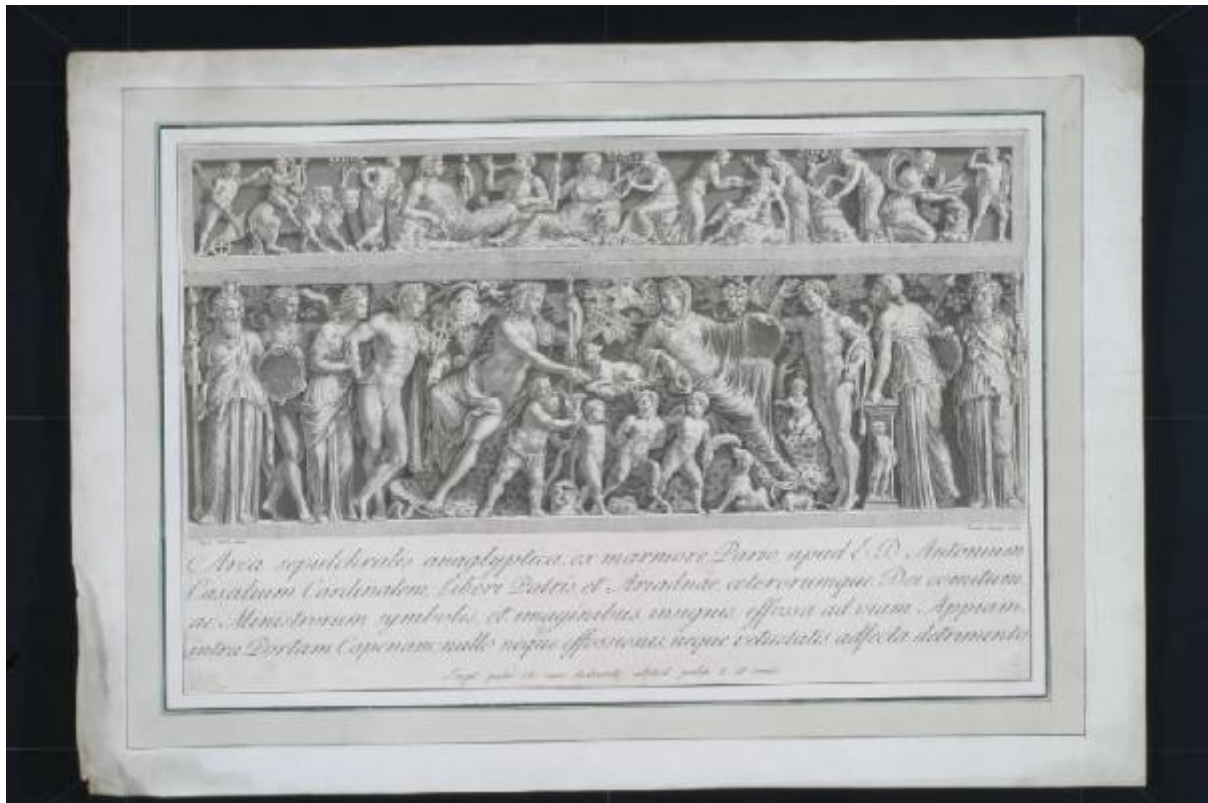 Arca sepulchralis anaglyptica, ex marmore Pario apud E. D. Antonium
Casalium Cardinalem, Liberi Patris, et Ariadnae, ceterorumque Dei comitum,
ac Ministrorum symbolis, et imaginibus insignis effossa ad viam Appiam,
intra Portam Capenam, nullo neque effossionis, neque vetustatis adfecta detrimento